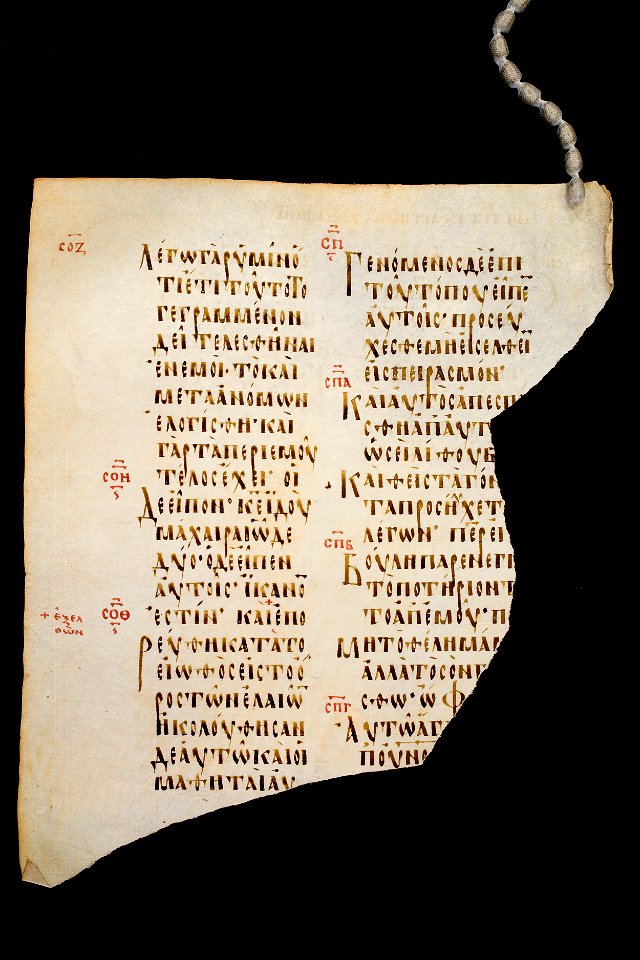 ϹΟΖ
ΛΕΓΩΓΑΡΥΜΙΝΟ̅
ΤΙΕΤΙΤΟΥΤΟΤΟ
ΓΕΓΡΑΜΜΕΝΟΝ
ΔΕΙΤΕΛΕϹΘΗΝΑΙ
ΕΝΕΜΟΙ·ΤΟΚΑΙ
ΜΕΤΑΑΝΟΜΩΝ
ΕΛΟΓΙϹΘΗ·ΚΑΙ
ΓΑΡΤΑΠΕΡΙΕΜΟΥ
ϹΟΗ
ΤΕΛΟϹΕΧΕΙ·ΟΙ
ΔΕΕΙΠΟΝ·Κ̅Ε̅ΙΔΟΥ
ΜΑΧΑΙΡΑΙΩΔΕ
ΔΥΟ·ΟΔΕΕΙΠΕΝ
ΑΥΤΟΙϹ·ΙΚΑΝΟ̅
ϹΟΘ
ΕϹΤΙΝ·ΚΑΙΕΠΟ
+ ΕΞΕΛ
ΘΩΝ
ΡΕΥΘΗΚΑΤΑΤΟ
ΕΙΩΘΟϹΕΙϹΤΟΟ
ΡΟϹΤΩΝΕΛΑΙΩ̅
ΗΚΟΛΟΥΘΗϹΑΝ
ΔΕΑΥΤΩΚΑΙΟΙ
ΜΑΘΗΤΑΙΑΥ
ϹΠ
ΓΕΝΟΜΕΝΟϹΔΕΕΠΙ
ΤΟΥΤΟΠΟΥΕΙΠΕ̅
ΑΥΤΟΙϹ·ΠΡΟϹΕΥ
ΧΕϹΘΕΜΗΕΙϹΕΛΘΕΙ̅
ϹΠΑ
ΕΙϹΠΕΙΡΑϹΜΟΝ·
ΚΑΙΑΥΤΟϹΑΠΕϹΠ
ϹΘΗΑΠΑΥΤ
ΩϹΕΙΛΙΘΟΥΒ
ΚΑΙΘΕΙϹΤΑΓΟΝ
ΤΑΠΡΟϹΗΥΧΕΤ
ϹΠΒ
ΛΕΓΩΝ·ΠΕΡΕΙ
ΒΟΥΛΗΠΑΡΕΝΕΓΚ
ΤΟΠΟΤΗΡΙΟΝΤ
ΤΟΑΠΕΜΟΥ·Π
ΜΗΤΟΘΕΛΗΜΑΜ
ΑΛΛΑΤΟϹΟΝΓ
ϹΠΓ
ϹΘΩ·ΩΦ
ΑΥΤΩΑΓ
ΠΟΥΝΟ